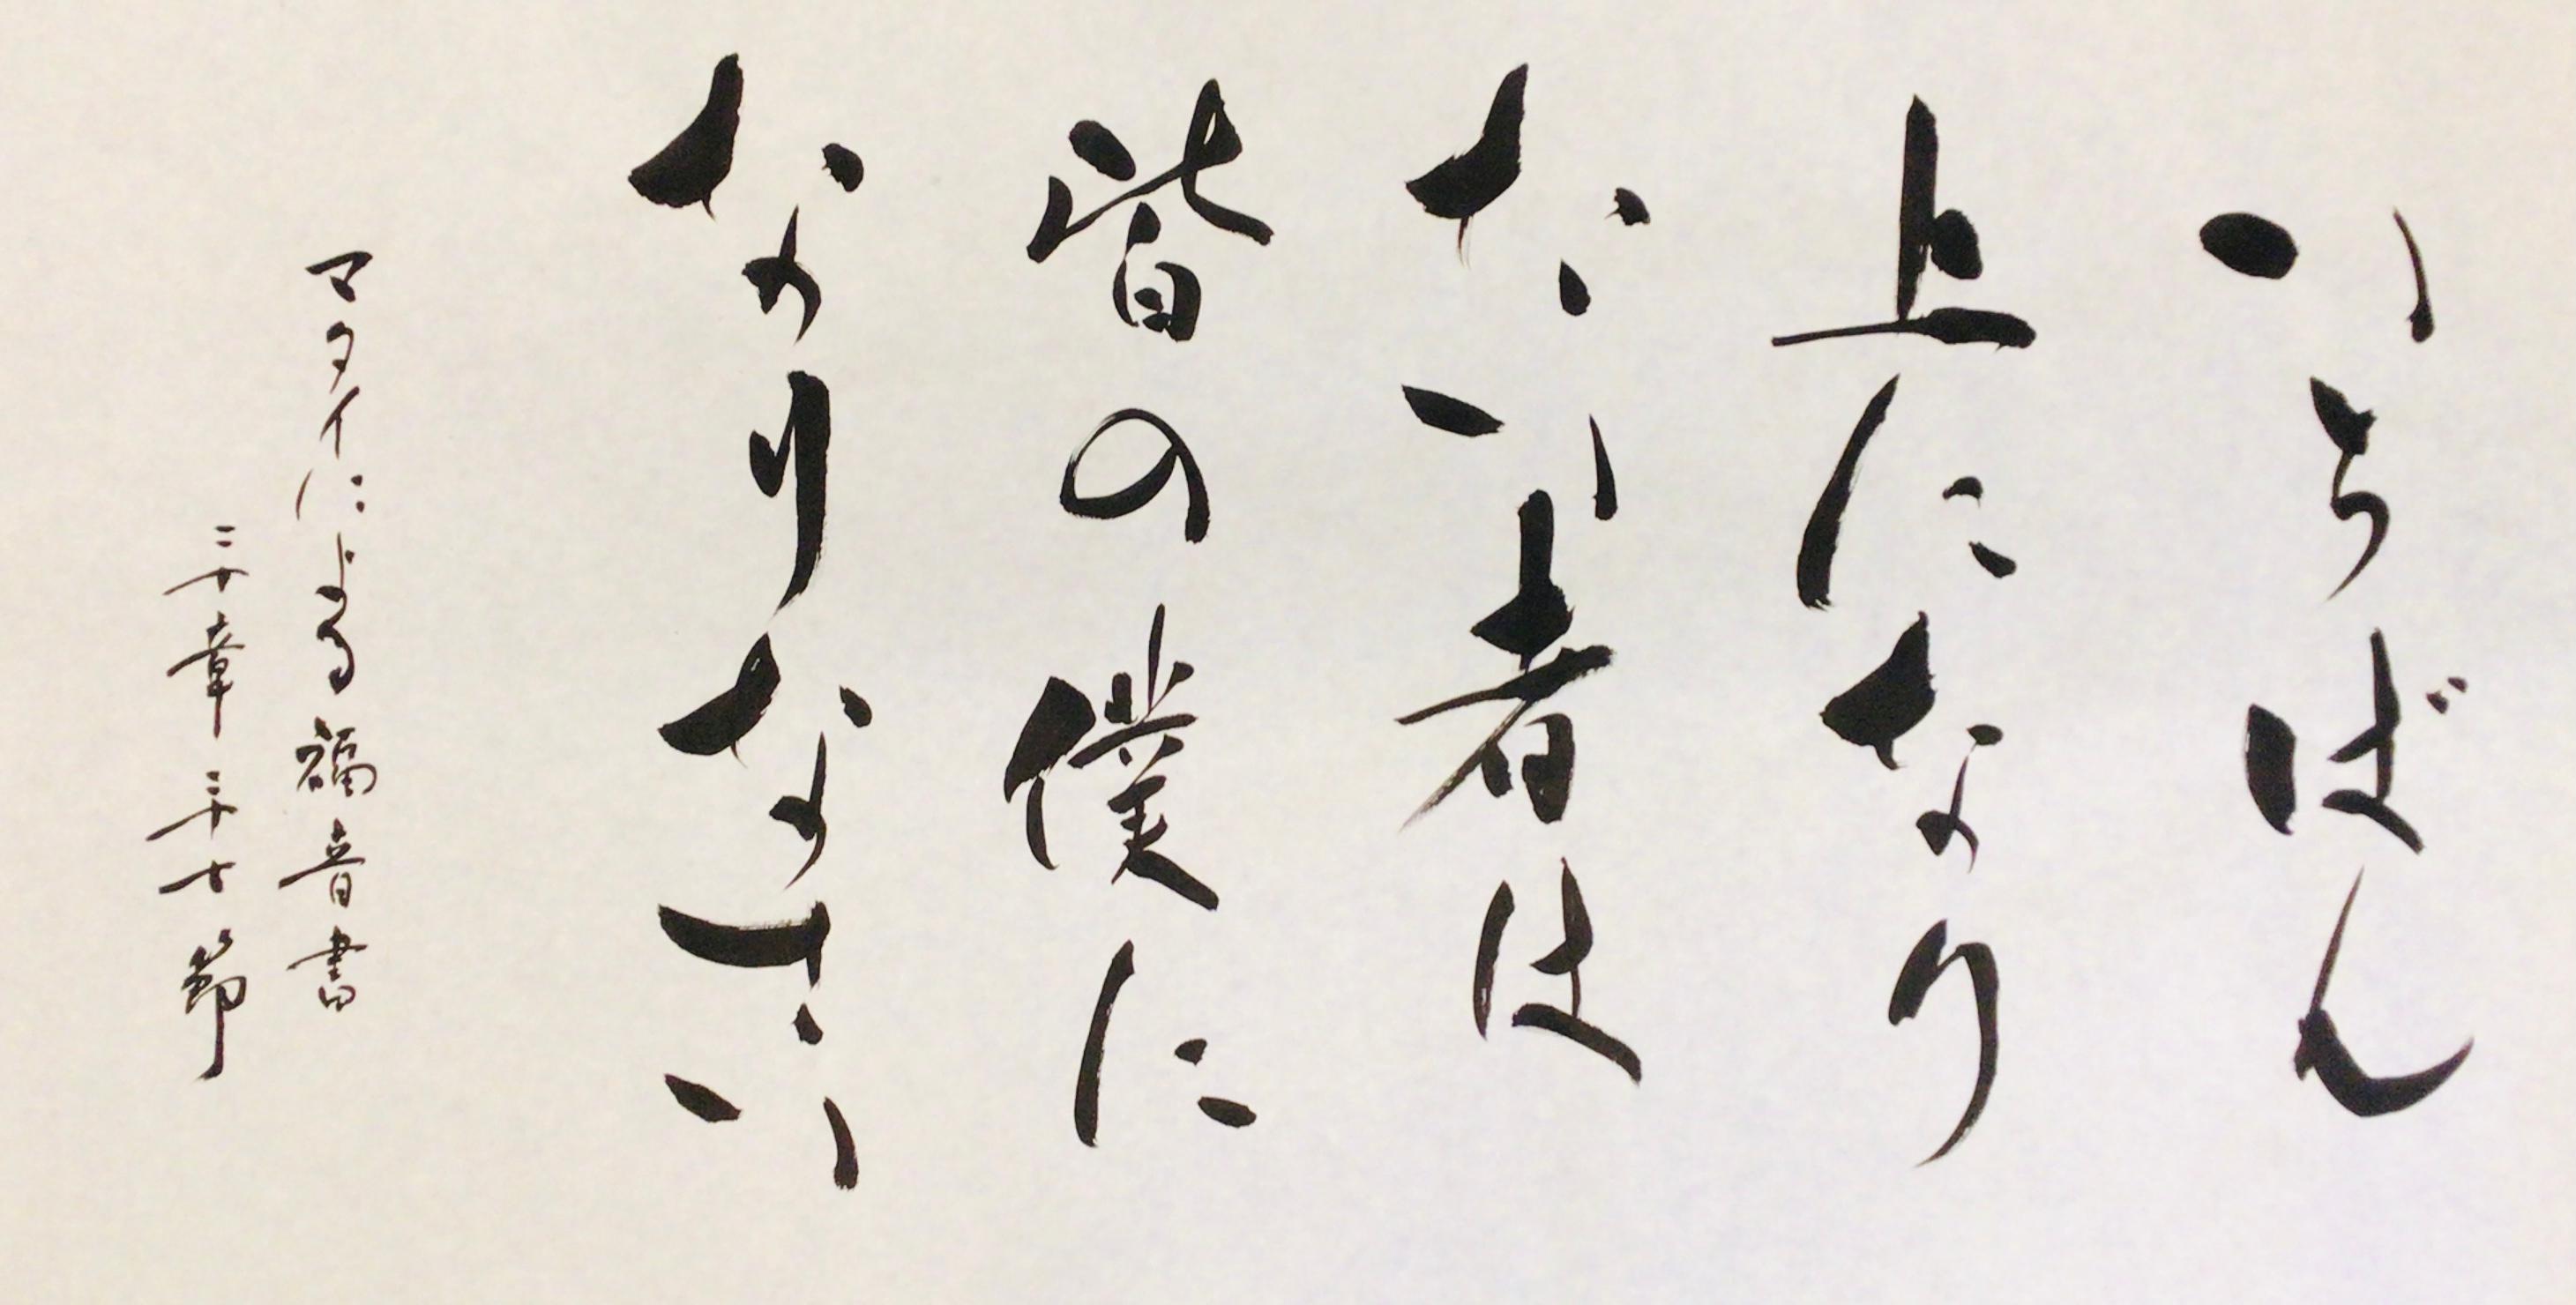 いちばん
上になり
たい者は
皆の僕に
なりなさい
マタイによる福音書
二十章二十七節